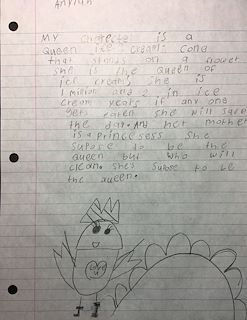 MY charecte is a
Queen ice cream cone
that stands on a flower
she is the Queen of
ice cream. She is
1 million and 2 in ice
cream years if any one
gets eaten she will save
the day. And her mother
is a Princesess she
supose to be the
queen but who will
clean. she's supose to be
the queen.